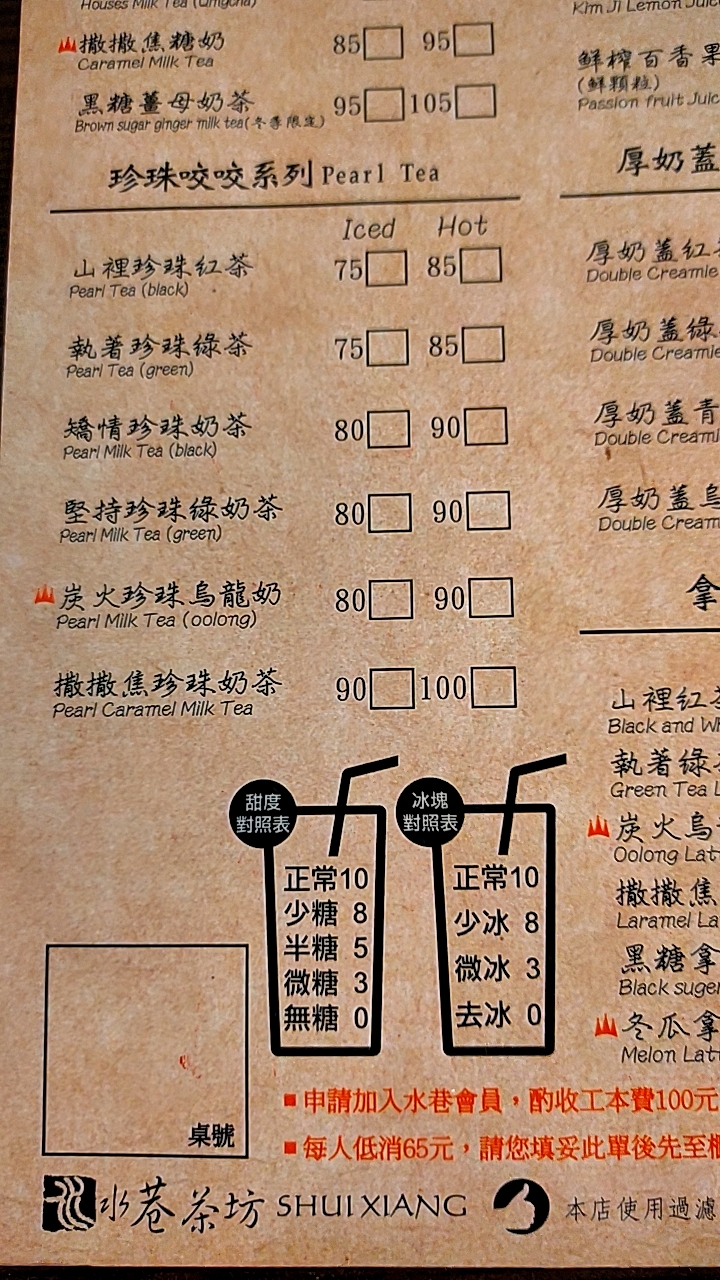 Houses Milk Tea (Qingcha)
撒撒焦糖奶 85 95
Caramel Milk Tea
黑糖薑母奶茶 95 105
Brown sugar ginger milk tea(冬季限定)
珍珠咬咬系列 Pearl Tea
Iced Hot
山裡珍珠紅茶 75 85
Pearl Tea (black)
執著珍珠綠茶 75 85
Pearl Tea (green)
矯情珍珠奶茶 80 90
Pearl Milk Tea (black)
堅持珍珠綠奶茶 80 90
Pearl Milk Tea (green)
炭火珍珠烏龍奶 80 90
Pearl Milk Tea (oolong)
撒撒焦珍珠奶茶 90 100
Pearl Caramel Milk Tea
甜度
對照表
正常 10
少糖 8
半糖 5
微糖 3
無糖 0
冰塊
對照表
正常 10
少冰 8
微冰 3
去冰 0
桌號
Kim Ji Lemon Juice
鮮榨百香果
(鮮顆粒)
Passion fruit Juic
厚奶蓋
厚奶蓋紅
Double Creamie
厚奶蓋綠
Double Creamie
厚奶蓋青
Double Creami
厚奶蓋烏
Double Cream
拿
山裡紅茶
Black and Wh
執著綠
Green Tea L
炭火烏
Oolong Latt
撒撒焦
Laramel La
黑糖拿
Black suger
冬瓜拿
Melon Latt
申請加入水巷會員，酌收工本費100元
每人低消65元，請您填妥此單後先至櫃
水巷茶坊 SHUI XIANG
本店使用過濾